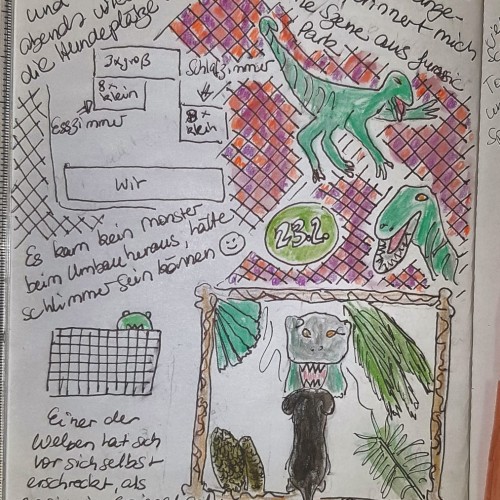 und
abends wie
die Hundeplätze
innert mich
ne Szene aus Jurassic
Park
3x groß
8x
klein
Schlafzimmer
8x
klein
Esszimmer
Wir
Es kam kein Monster
beim Umbau heraus, hätte
schlimmer sein können
23.2.
Einer der
Welpen hat sich
vor sich selbst
erschreckt, als